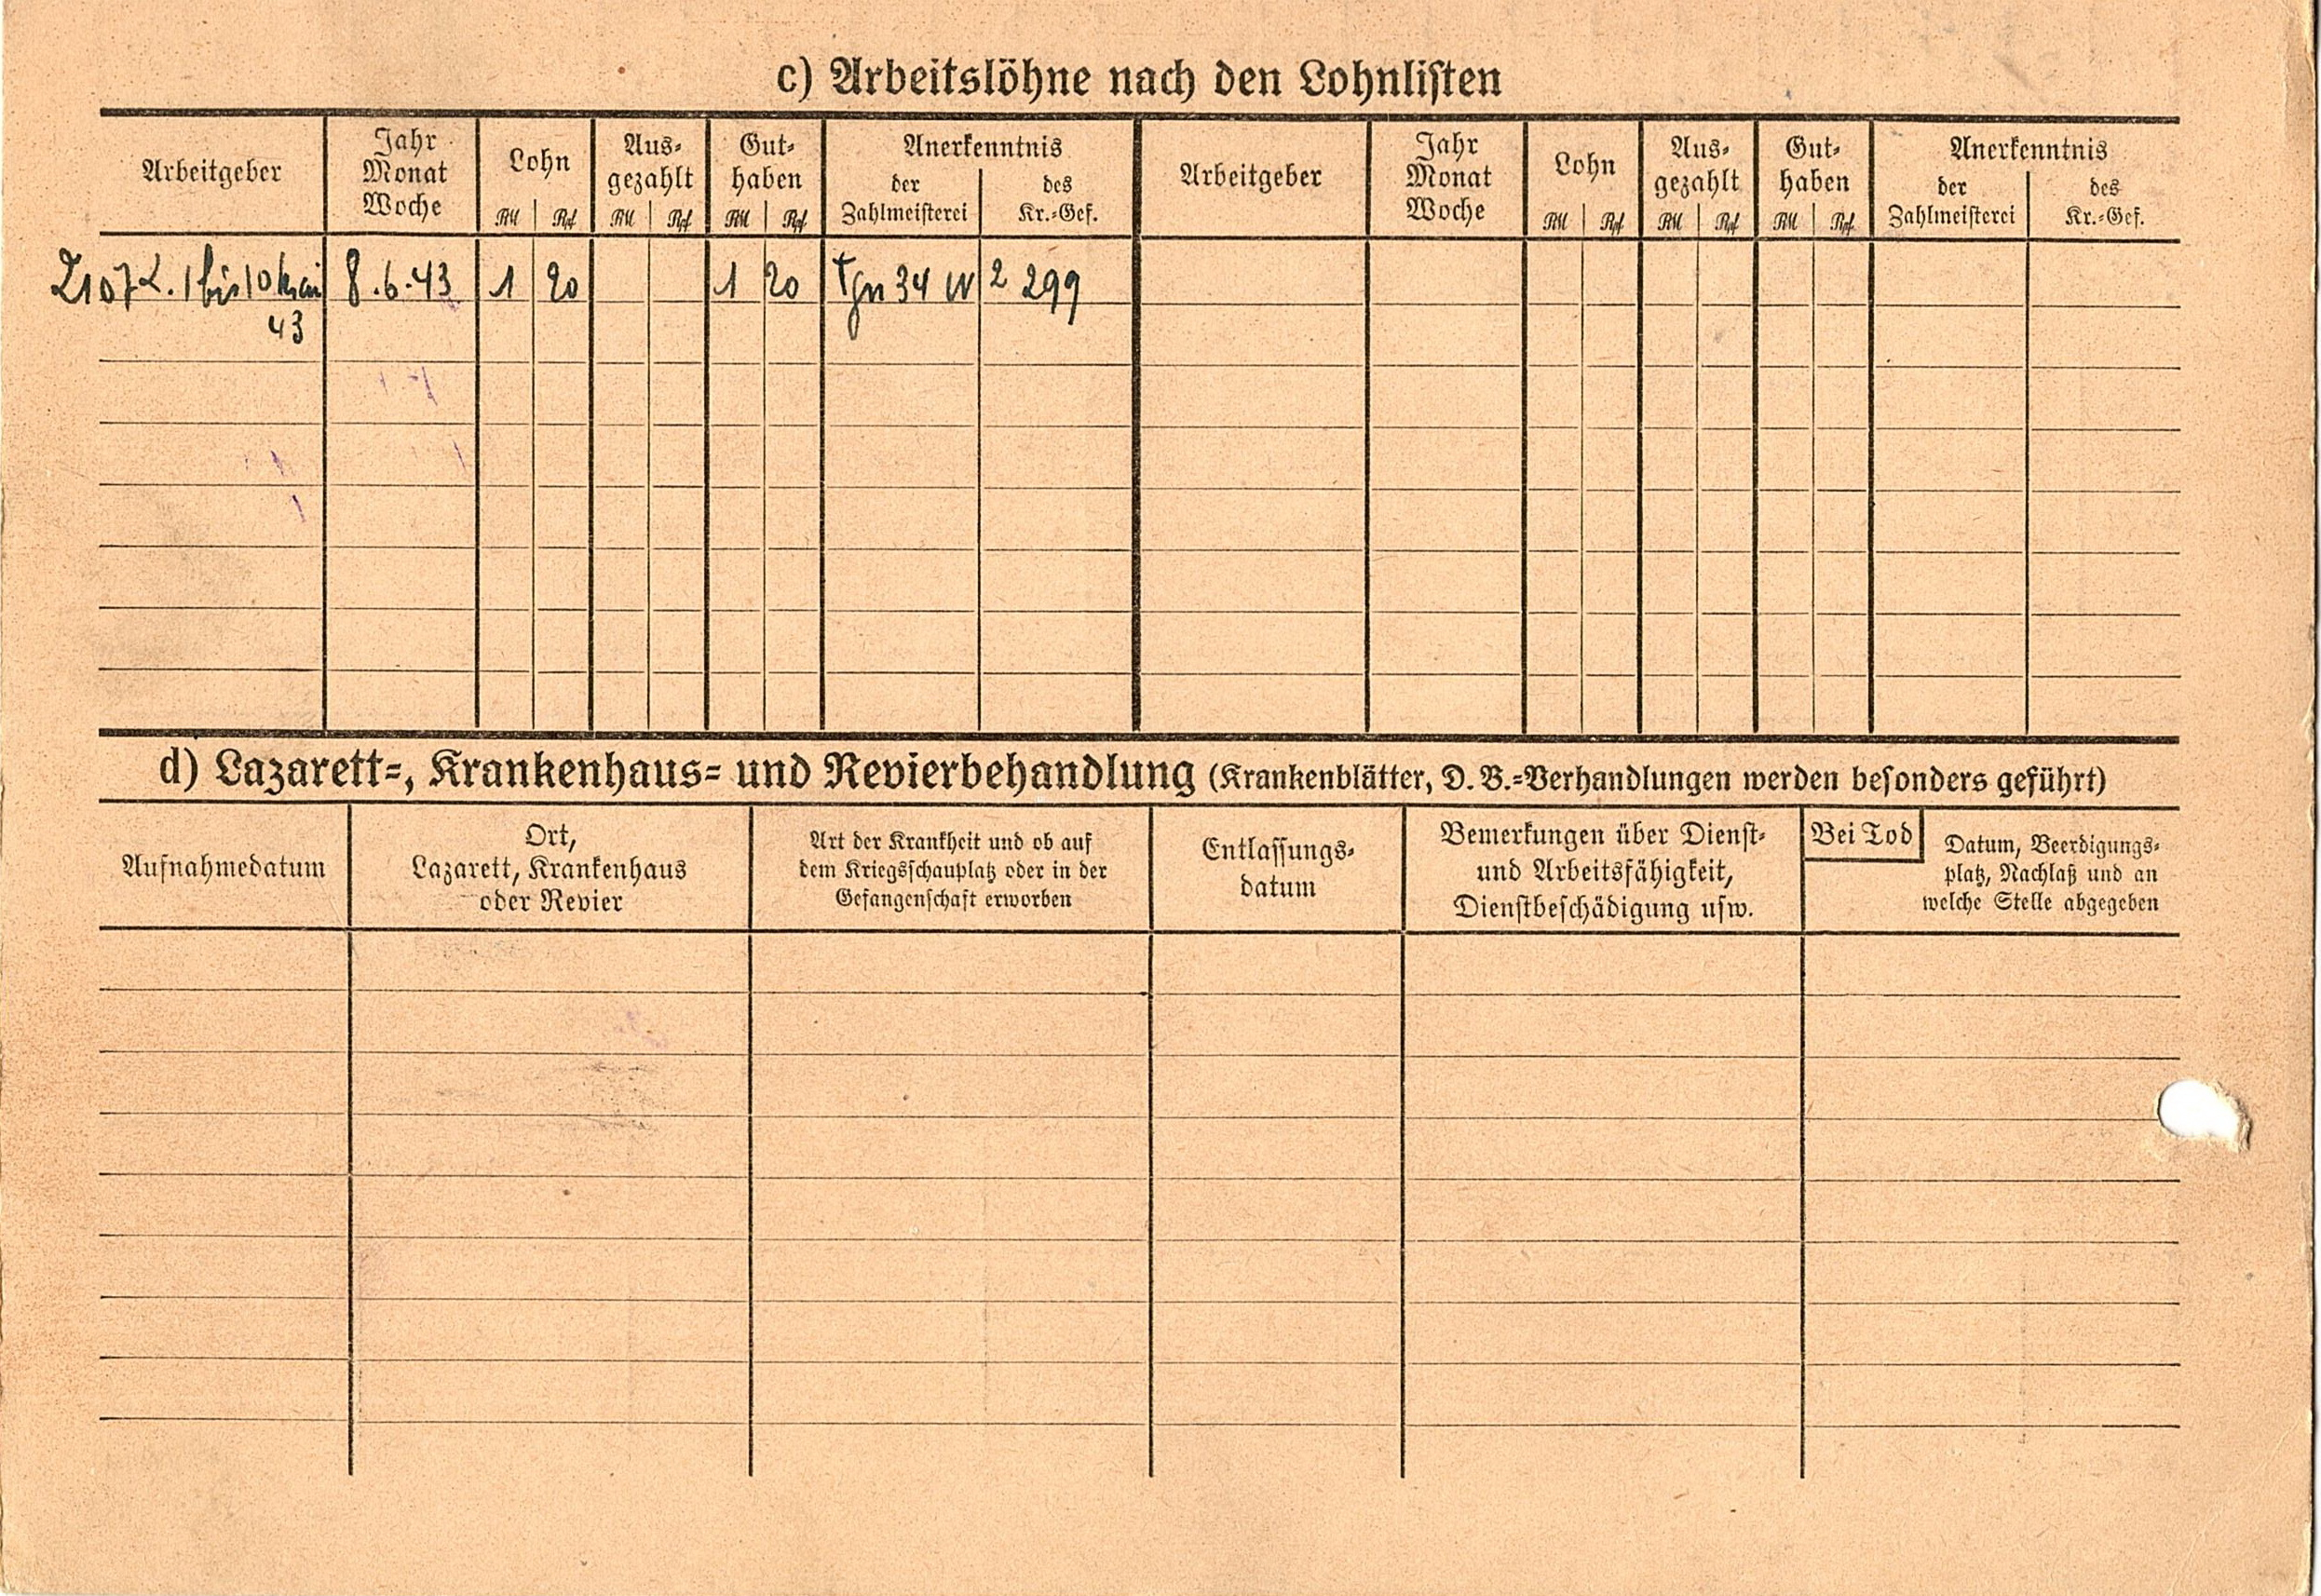 c) Arbeitslöhne nach den Lohnlisten
Arbeitgeber
Jahr
Monat
Woche
Lohn
RM Rpf
Aus-
gezahlt
RM Rpf
Gut-
haben
RM Rpf
Anerkenntnis
der
Zahlmeisterei
des
Kr.-Gef.
Arbeitgeber
Jahr
Monat
Woche
Lohn
RM Rpf
Aus-
gezahlt
RM Rpf
Gut-
haben
RM Rpf
Anerkenntnis
der
Zahlmeisterei
des
Kr.-Gef.
1 bis 10 Mai 8.6.43 1 20 1 20 34 299
43
d) Lazarett-, Krankenhaus- und Revierbehandlung (Krankenblätter, D. B.-Verhandlungen werden besonders geführt)
Aufnahmedatum
Ort,
Lazarett, Krankenhaus
oder Revier
Art der Krankheit und ob auf
dem Kriegsschauplatz oder in der
Gefangenschaft erworben
Entlassungs-
datum
Bemerkungen über Dienst-
und Arbeitsfähigkeit,
Dienstbeschädigung usw.
Bei Tod
Datum, Beerdigungs-
platz, Nachlaß und an
welche Stelle abgegeben